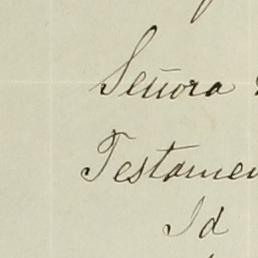 Señora
Testamen
Id